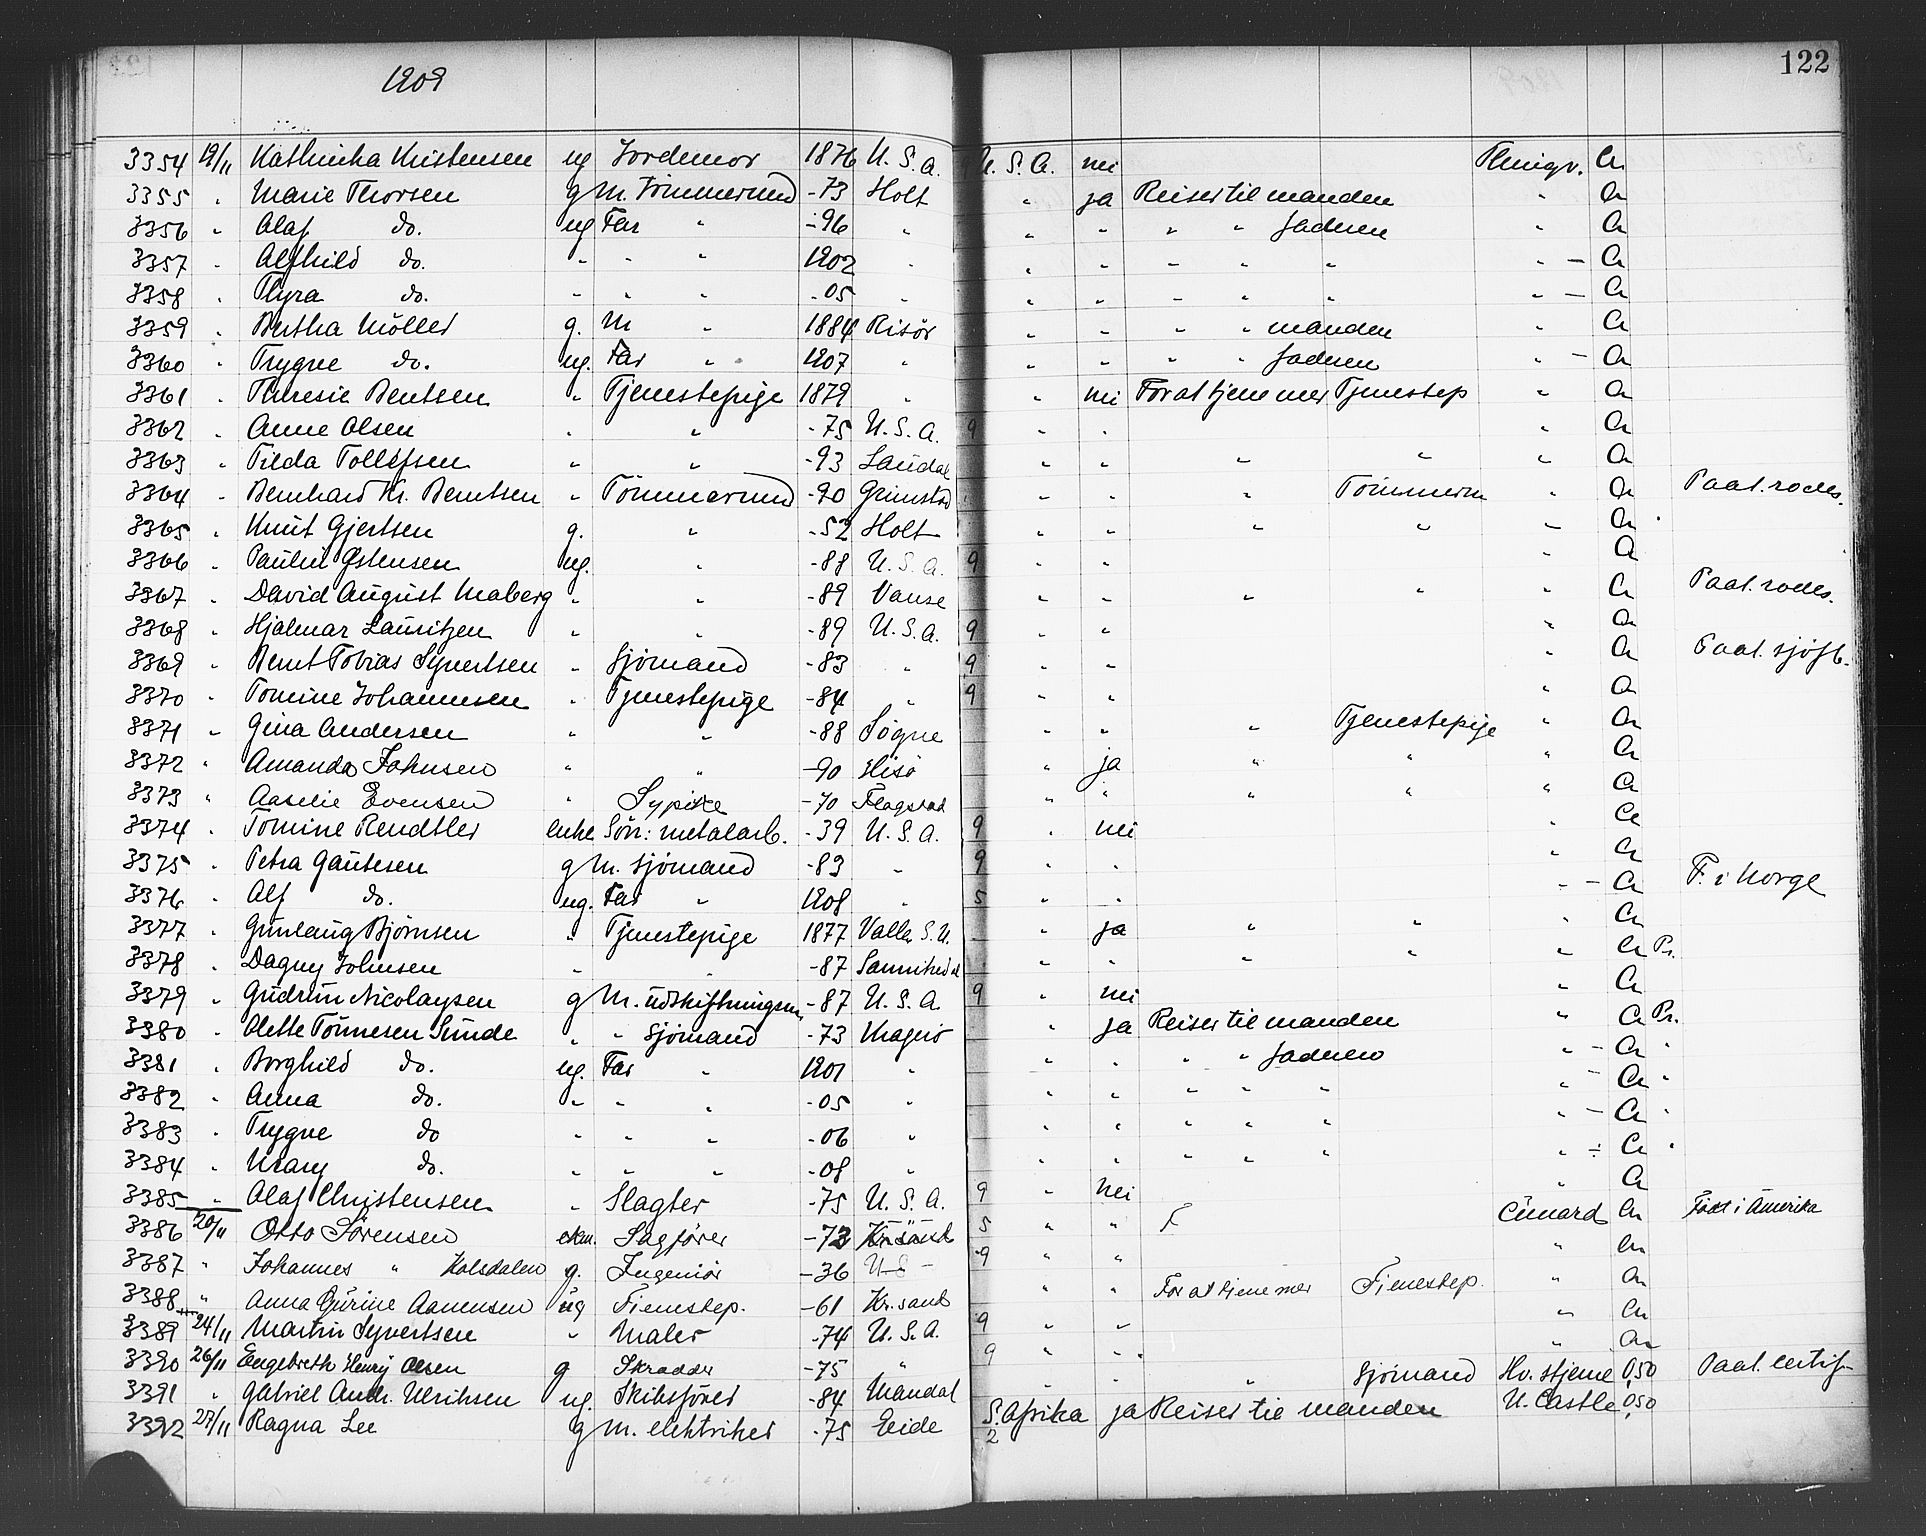 1909 122
3354 19/11 Kathinka Kristensen ug Jordemor 1876 U. S. A. U. S. A. nei Thingv. Cr
3355 " Marie Thorsen g M. Tömmermand -73 Holt " ja Reiser til manden " Cr
3356 " Olaf do. ug Far " -96 " " " " " faderen " Cr
3357 " Alfhild do. " " " 1902 " " " " " " " - Cr
3358 " Thyra do. " " " -05 " " " " " " " - Cr
3359 " Bertha Möller g. M " 1884 Risör " " " " manden " Cr
3360 " Trygve do. ug. Far " 1907 " " " " " faderen " - Cr
3361 " Theresie Bentsen " Tjenestepige 1879 " " nei For at tjene mer Tjenestep " Cr
3362 " Anne Olsen " " -75 U. S. A. 9 " " " Cr
3363 " Tilda Tollefsen " " -93 Laudal " " " " " Cr
3364 " Bernhard Kr. Berntsen " Tömmermand -90 Grimstad " " " Tömmerm " Cr Paat. rodes.
3365 " Knut Gjertsen g. " -52 Holt " " " " " Cr "
3366 " Paulin Østensen ug. " -88 U. S. A. 9 " " " Cr
3367 " David August Maberg " " -89 Vanse " " " " " Cr Paat. rodes.
3368 " Hjalmar Lauritzen " " -89 U. S. A. 9 " " " Cr
3369 " Bernt Tobias Syvertsen " Sjömand -83 " 9 " " " Cr Paat. sjöfb.
3370 " Tomine Johannesen " Tjenestepige -84 " 9 " " " Cr
3371 " Gina Andersen " " -88 Søgne " " " Tjenestepige " Cr
3372 " Amanda Johnsen " " -90 Hisö " ja " " " Cr
3373 " Aaselie Evensen " Sypike -70 " " " " " Cr
3374 " Tomine Rendtler enke Sön: metalarb. -39 U. S. A. 9 " nei " Cr
3375 " Petra Gautesen g M. sjömand -83 " 9 " " " Cr
3376 " Alf do. ug. Far " 1908 " 5 " " " - Cr F. i Norge
3377 " Gunlaug Bjørnsen " Tjenestepige 1877 Valle, S. " ja " " " Cr
3378 " Dagny Johnsen " " -87 Sannikedal " " " " " Cr Pr.
3379 " Gudrun Nicolaysen g M. udskiftningsm. -87 U. S. A 9 " nei " Cr
3380 " Olette Tönnesen Sunde " " sjömand -73 Kragerö " ja Reiser til manden " Cr Pr.
3381 " Borghild do. ug. Far " 1901 " " " " " faderen " - Cr "
3382 " Anna do. " " " -05 " " " " " " " - Cr "
3383 " Trygve do " " " -06 " " " " " " " - Cr "
3384 " do. " " " -08 " " " " " " " - Cr "
3385 " Olaf Christensen " Slagter -75 U. S. A. 9 " nei " Cr
3386 20/11 Otto Sörensen ekm. Sagförer -73 Kr.sand 5 " " F Cunard Cr Födt i Amerika
3387 " Johannes " Holsdalen g. Ingeniör -36 U S - 9 " " " Cr
3388 " Anna Gurine Aanensen ug Tienestep. -61 Kr.sand " " For at tjene mer Tienestep. " Cr
3389 24/11 Martin Syvertsen " Maler -74 U. S. A. 9 " " " Cr
3390 26/11 Engebreth Henrij Olsen g Skrædder -75 " 9 " " " Cr
3391 " Gabriel Andr. Ulriksen ug. Skibsförer -84 Mandal " " " Sjömand Hv. stjerne 0,50 Paat. certif.
3392 27/11 Ragna Lee g M. elektriker -75 Eide S. Afrika 2 ja Reiser til manden U. Castle 0,50